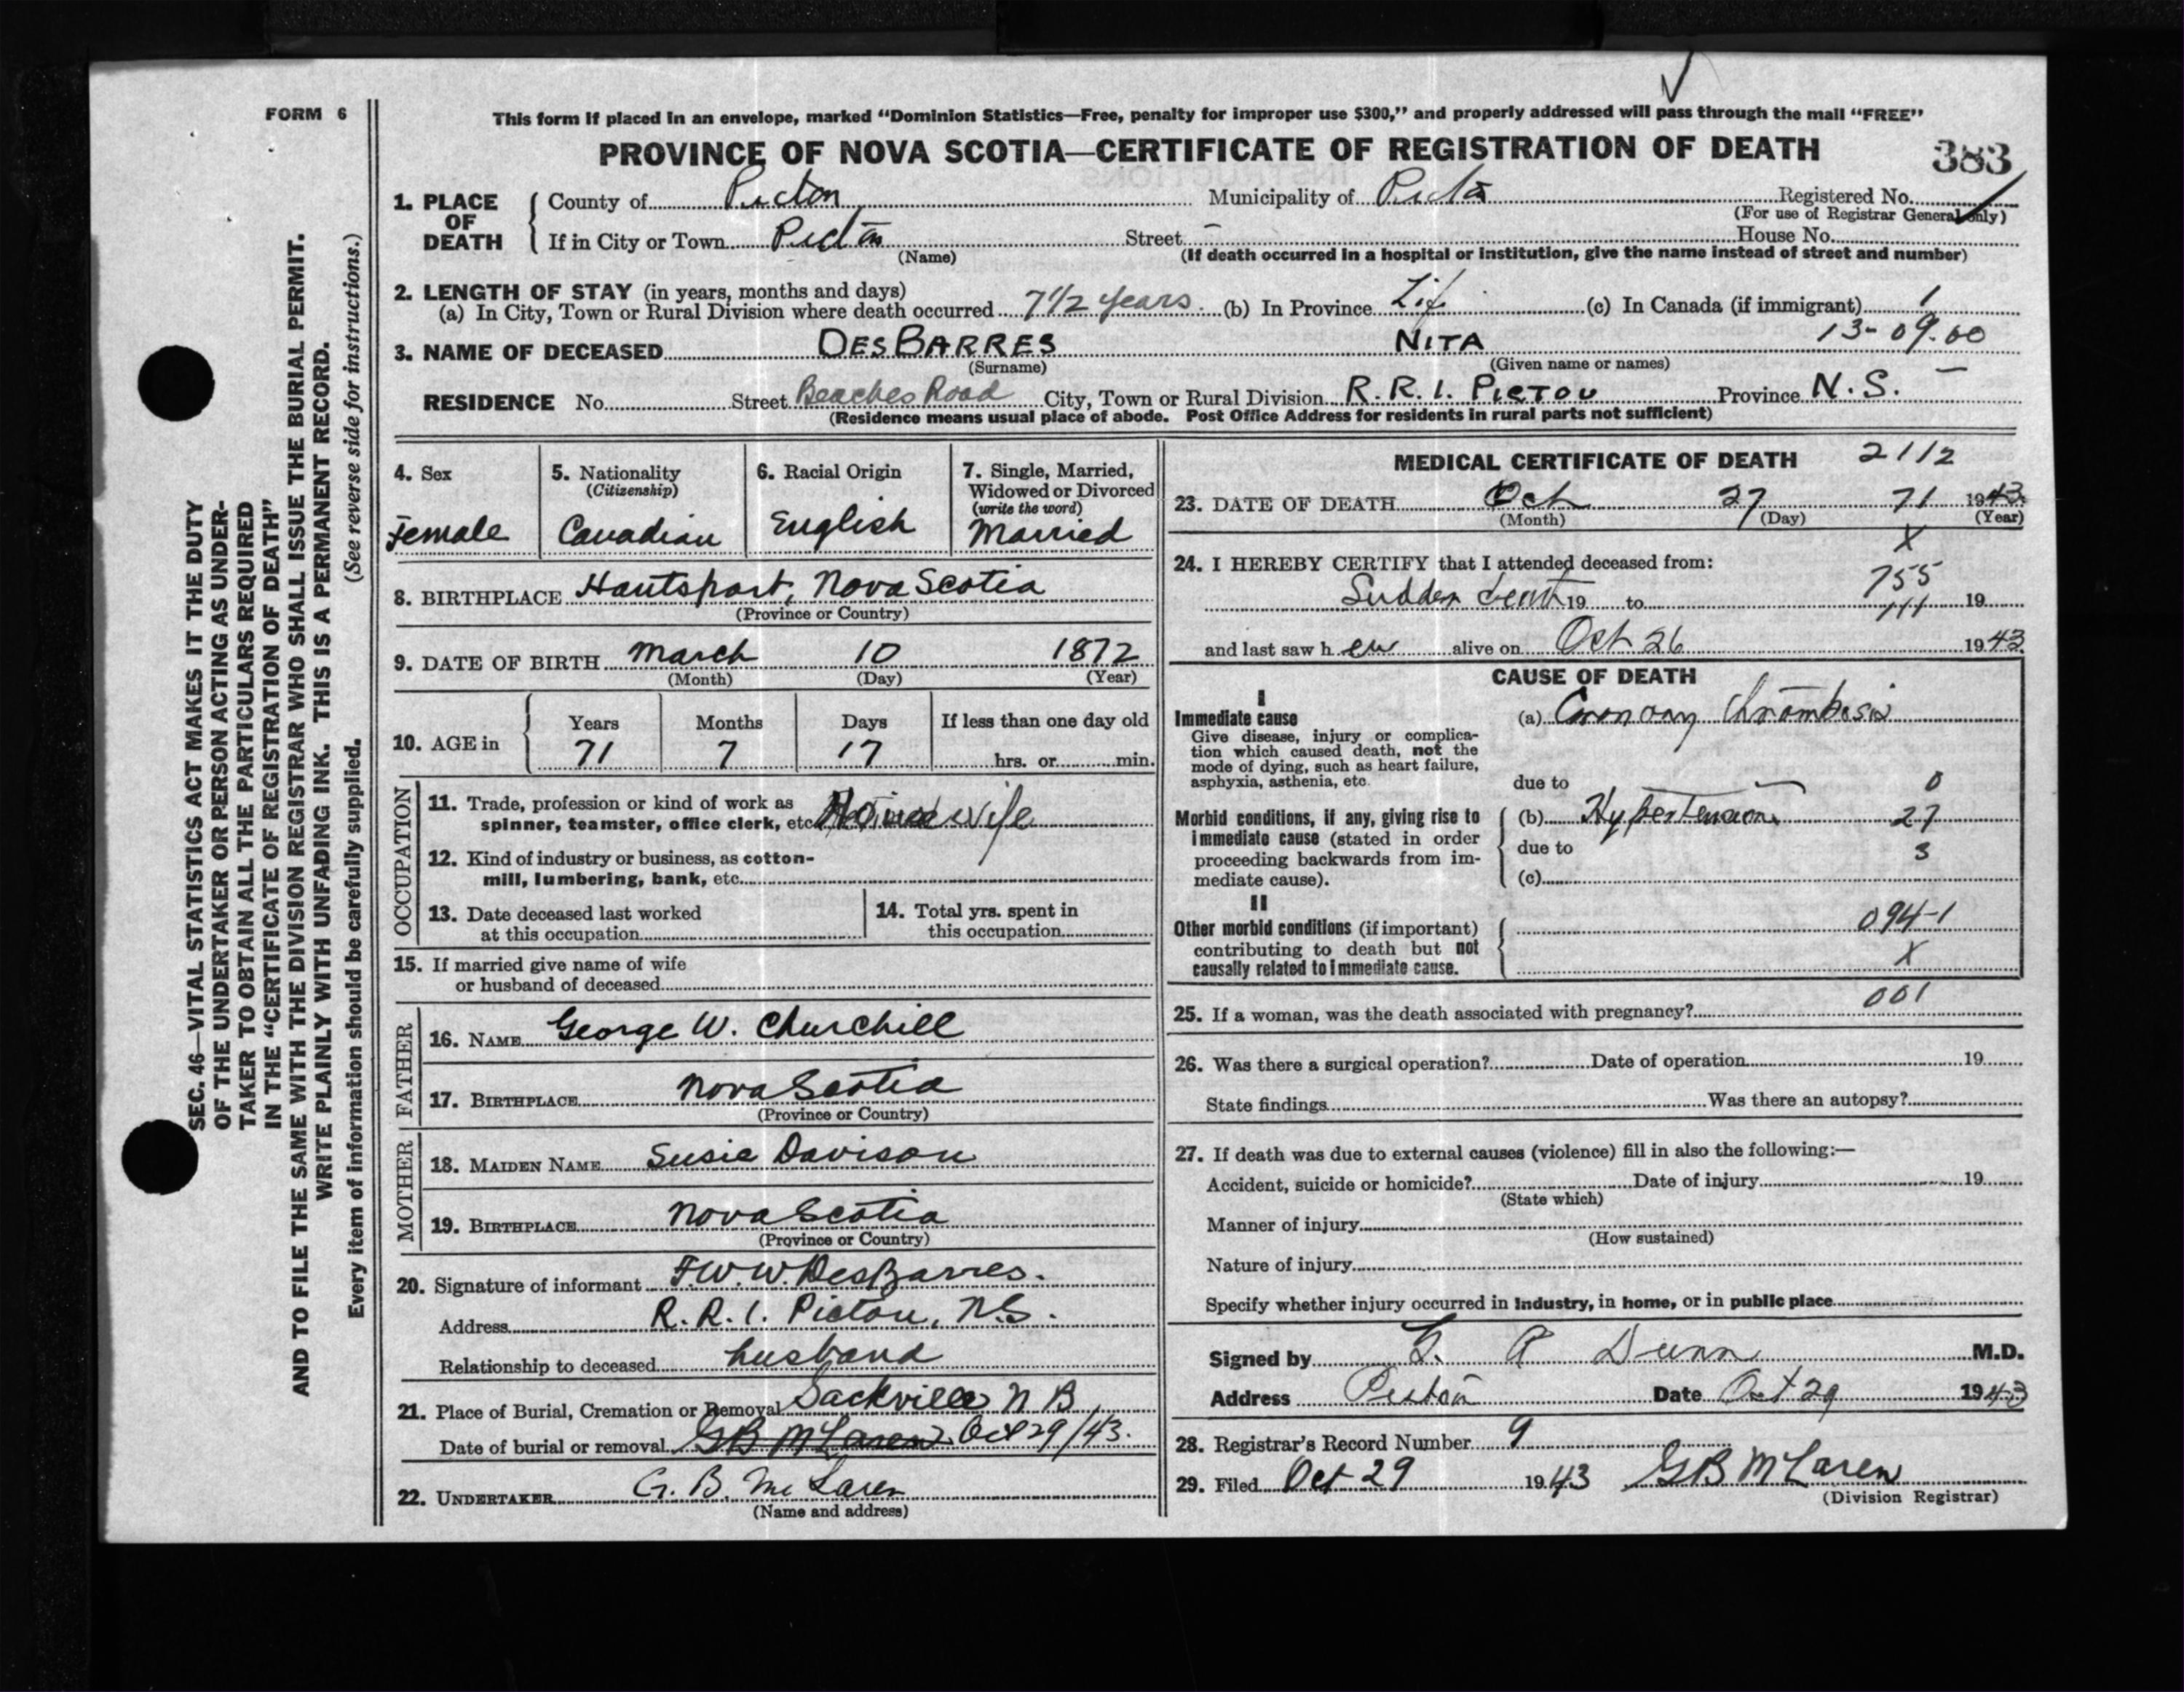 FORM 6
This form if placed in an envelope, marked "Dominion Statistics—Free, penalty for improper use $300," and properly addressed will pass through the mail "FREE"
PROVINCE OF NOVA SCOTIA—CERTIFICATE OF REGISTRATION OF DEATH
383
1. PLACE OF DEATH
County of Pictou Municipality of Pictou Registered No.
(For use of Registrar General only)
If in City or Town Pictou Street – House No.
(Name) (If death occurred in a hospital or institution, give the name instead of street and number)
2. LENGTH OF STAY (in years, months and days)
(a) In City, Town or Rural Division where death occurred 7 1/2 years. (b) In Province Life (c) In Canada (if immigrant) 1
13-09.00
3. NAME OF DECEASED DESBARRES NITA
(Surname) (Given name or names)
RESIDENCE No. Street Beaches Road City, Town or Rural Division R. R. 1. PICTOU Province N.S. –
(Residence means usual place of abode. Post Office Address for residents in rural parts not sufficient)
SEC. 46—VITAL STATISTICS ACT MAKES IT THE DUTY
OF THE UNDERTAKER OR PERSON ACTING AS UNDER-
TAKER TO OBTAIN ALL THE PARTICULARS REQUIRED
IN THE "CERTIFICATE OF REGISTRATION OF DEATH"
AND TO FILE THE SAME WITH THE DIVISION REGISTRAR WHO SHALL ISSUE THE BURIAL PERMIT.
WRITE PLAINLY WITH UNFADING INK. THIS IS A PERMANENT RECORD.
Every item of information should be carefully supplied. (See reverse side for instructions.)
4. Sex
Female
5. Nationality
(Citizenship)
Canadian
6. Racial Origin
English
7. Single, Married,
Widowed or Divorced
(write the word)
Married
8. BIRTHPLACE Hantsport, Nova Scotia
(Province or Country)
9. DATE OF BIRTH March 10 1872
(Month) (Day) (Year)
10. AGE in
Years Months Days If less than one day old
71 7 17 hrs. or min.
OCCUPATION
11. Trade, profession or kind of work as
spinner, teamster, office clerk, etc. Housewife
12. Kind of industry or business, as cotton-
mill, lumbering, bank, etc.
13. Date deceased last worked
at this occupation
14. Total yrs. spent in
this occupation
15. If married give name of wife
or husband of deceased
FATHER
16. NAME George W. Churchill
17. BIRTHPLACE Nova Scotia
(Province or Country)
MOTHER
18. MAIDEN NAME Susie Davison
19. BIRTHPLACE Nova Scotia
(Province or Country)
20. Signature of informant F.W.W. DesBarres.
Address R. R. 1. Pictou, N.S.
Relationship to deceased husband
21. Place of Burial, Cremation or Removal Sackville N B
Date of burial or removal GB McLaren Oct 29/43.
22. UNDERTAKER G. B. McLaren
(Name and address)
MEDICAL CERTIFICATE OF DEATH 2112
23. DATE OF DEATH Oct 27 71 1943
(Month) (Day) (Year)
X
24. I HEREBY CERTIFY that I attended deceased from:
755
Sudden death 19 to 111 19
and last saw h er alive on Oct 26 1943
CAUSE OF DEATH
I
Immediate cause
Give disease, injury or complica-
tion which caused death, not the
mode of dying, such as heart failure,
asphyxia, asthenia, etc.
(a) Coronary thrombosis
due to 0
Morbid conditions, if any, giving rise to
immediate cause (stated in order
proceeding backwards from im-
mediate cause).
(b) Hypertension 27
due to 3
(c)
II
Other morbid conditions (if important)
contributing to death but not
causally related to immediate cause.
094-1
X
001
25. If a woman, was the death associated with pregnancy?
26. Was there a surgical operation? Date of operation 19
State findings Was there an autopsy?
27. If death was due to external causes (violence) fill in also the following:—
Accident, suicide or homicide? Date of injury 19
(State which)
Manner of injury
(How sustained)
Nature of injury
Specify whether injury occurred in industry, in home, or in public place
Signed by G. A Dunn M.D.
Address Pictou Date Oct 29 1943
28. Registrar's Record Number 9
29. Filed Oct 29 1943 GB McLaren
(Division Registrar)